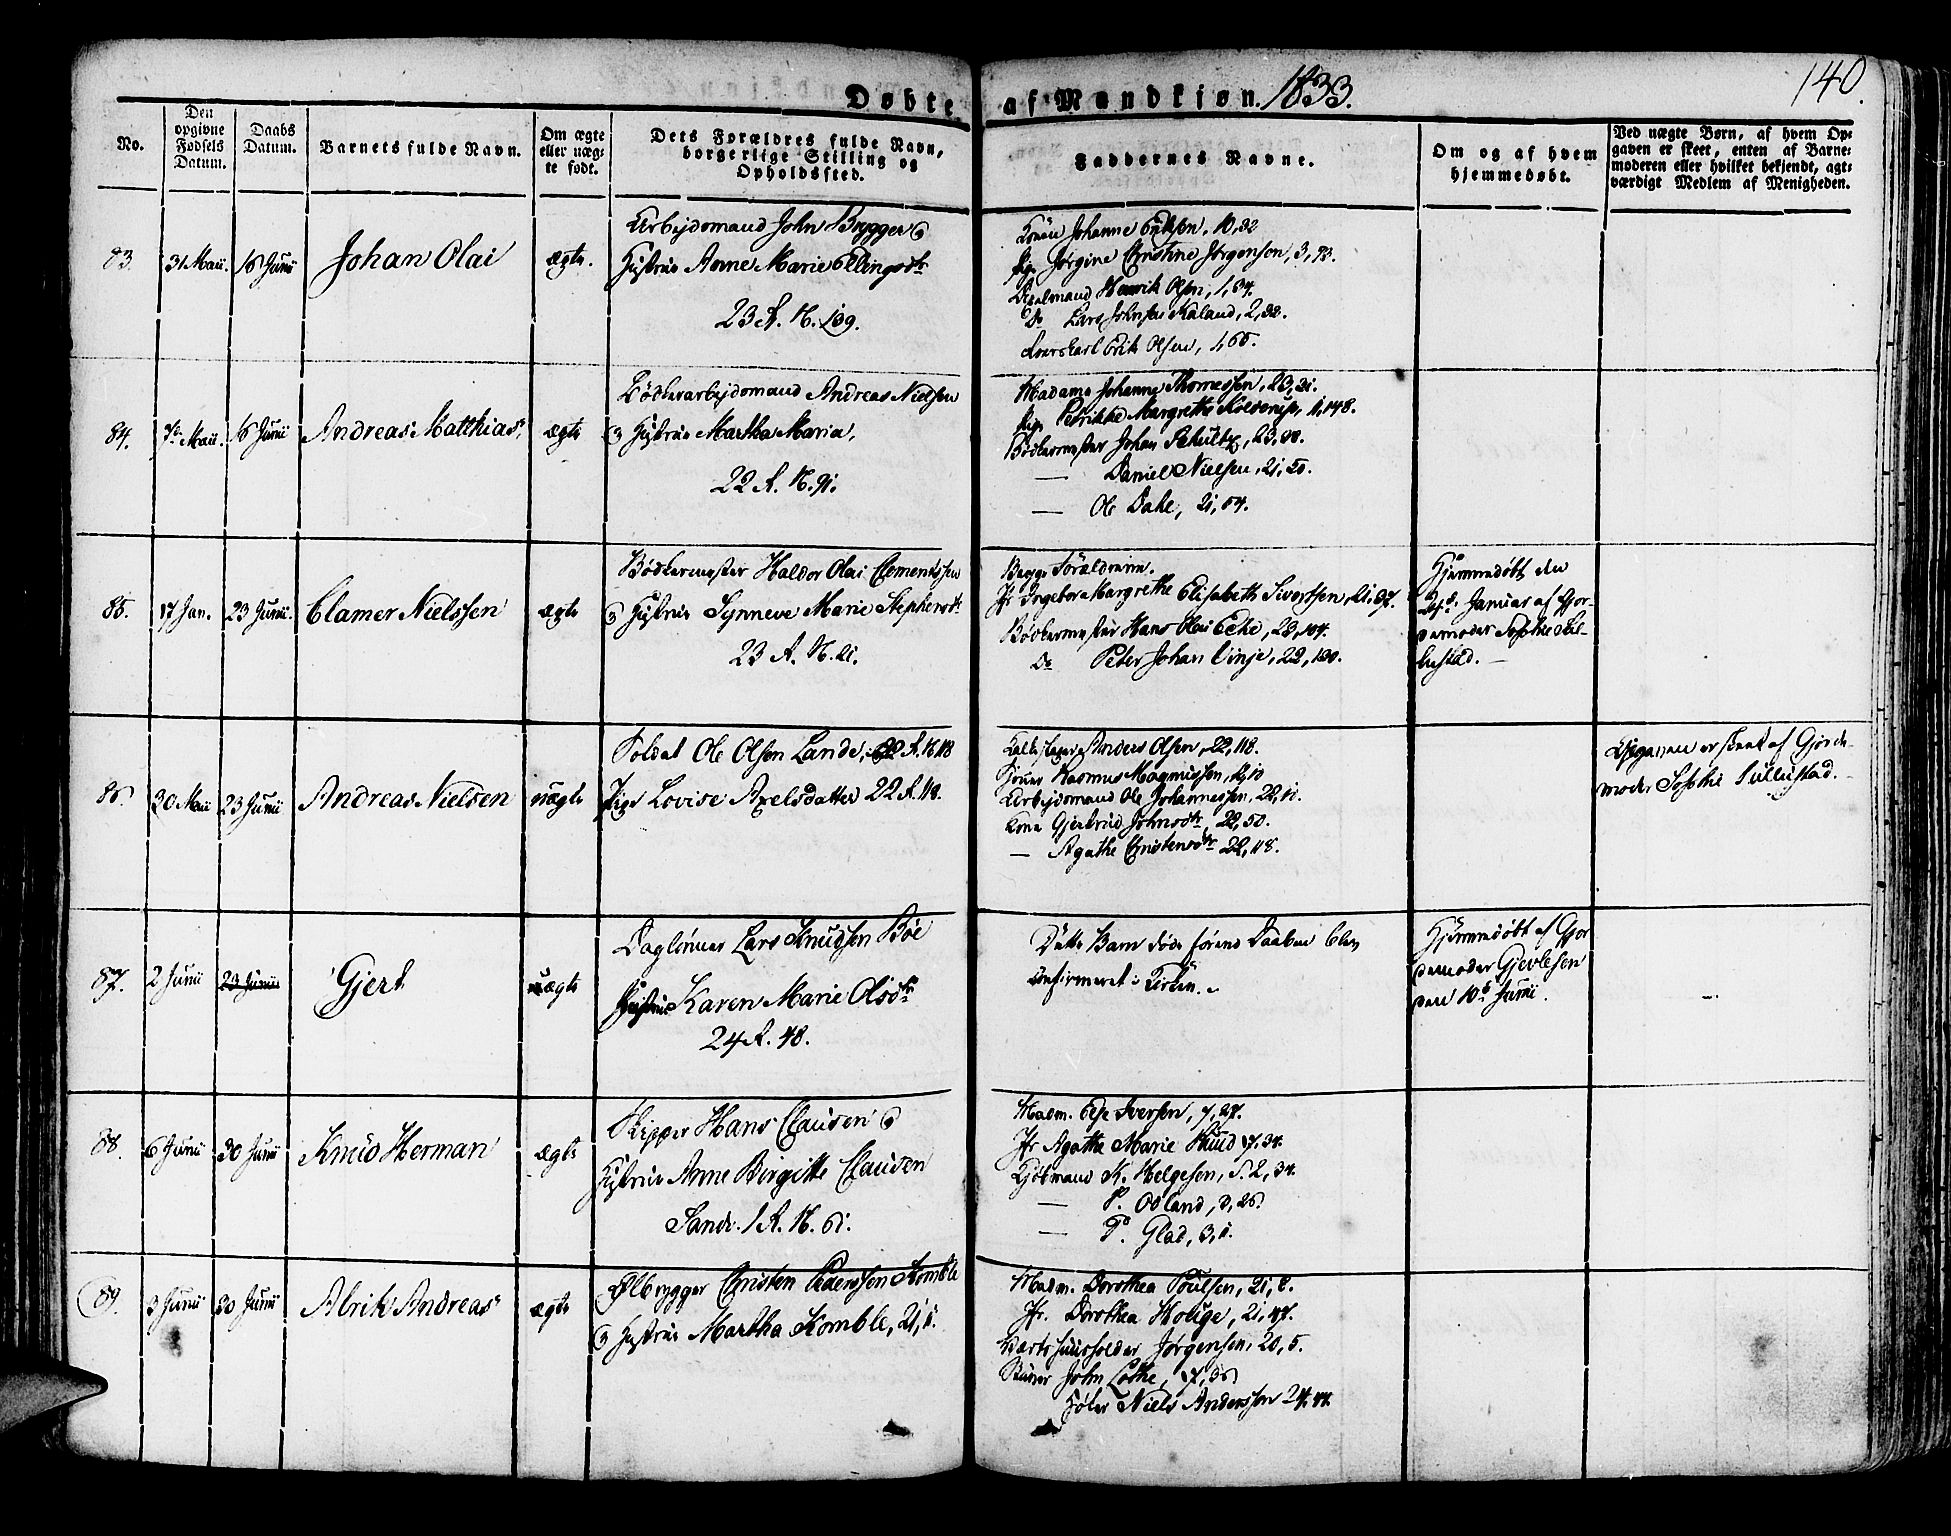 Døbte af Mandkiøn. 1833.
140.
No.
Den opgivne Fødsels Datum.
Daabs Datum.
Barnets fulde Navn.
Om ægte eller uægte født.
Dets Forældres fulde Navn, borgerlige Stilling og Opholdssted.
Faddernes Navne.
Om og af hvem hjemmedøbt.
Ved uægte Børn, af hvem Opgaven er skeet, enten af Barnemoderen eller hvilket bekjendt, agtværdigt Medlem af Menigheden.
83.
31 Maii.
16 Junii
Johan Olai
ægte.
Arbejdsmand John Brygger
Hustrue Anne Marie Ellingsdtr
23 R. N. 109.
Konen Johanne Eriksen, 10,32
Pige Jørgine Christine Jørgensen, 3,93.
Henrik Olsen, 1,64.
Do Lars Johnsen Kaland, 2,32.
Erik Olsen,
84.
Maii.
16 Junii
Andreas Matthias.
ægte
Bødkerarbejdsmand Andreas Nielsen
Hustrue Martha Maria,
22 R. N. 91.
Madame Johanne Thomessen, 23,21.
Pige Petrikke Margrethe Kolderup, 11,148.
Bødkermester Johan Schultz, 23,
— Daniel Nielsen, 21,50.
— Ole Dahe, 21,64.
85.
17 Jan.
23 Junii.
Clamer Nielssen
ægte
Bødkermester Haldor Olai Clementssen
Hustrue Synneve Marie Stephensdtr
23 R. N. 21.
Begge Forældrene.
Jfr Ingebor Margrethe Elisabeth Sivertsen, 21,
Bødkermester Hans Olai Eche, 23,104.
Do Peter Johan Vinje, 22, 130.
Hjemmedøbt den
Januar af Gjor-
demoder Sophie Sul-
lustad. —
86.
30 Maii
23 Junii
Andreas Nielsen
uægte
Soldat Ole Olsen Lande, 22 R. N. 118
Pige Lovise Axelsdatter 22 R. 118.
Anders Olsen, 22,118.
Rasmus Magnussen,
Arbejdsmand Ole Johannessen, 22,11.
Kone Gjertrud Johnsdtr, 22,50.
— Agathe Christensdtr 22,118.
Opgaven er skeet af Gjorde-
moder Sophie Sullustad.
87.
2 Junii
23 Junii
Gjert
uægte
Daglønner Lars Knudsen Bøe
Hustrue Karen Marie Olsdtr
24 R. 48.
Dette Barn døde førend Daaben blev
confirmeret i Kirken.
Hjemmedøbt af Gjor
demoder Gjevlesen
den 10de Junii.
88.
6 Junii
30 Junii
Knud Herman
ægte
Skipper Hans Clausen
Hustrue Anne Birgitte Clausen
Sandv. 1 R. N. 61.
Madm. Else Iversen, 7,27.
Jfr Agathe Marie Knud 17,34.
Kjøbmand K. Helgesen, S. 2, 34.
— P. Odland, 3, 26.
— P. Glad, 3,1.
89.
3 Junii
30 Junii
Alrik Andreas
ægte
Ølbrygger Christen Pederssen Komble
Hustrue Martha Komble, 21,1.
Madm. Dorothea Poulsen, 21, 2.
Jfr. Dorothea Houge, 21,47.
Værtshuusholder Jørgensen, 20, 5.
John Lothe, 17,
Niels Anderssen